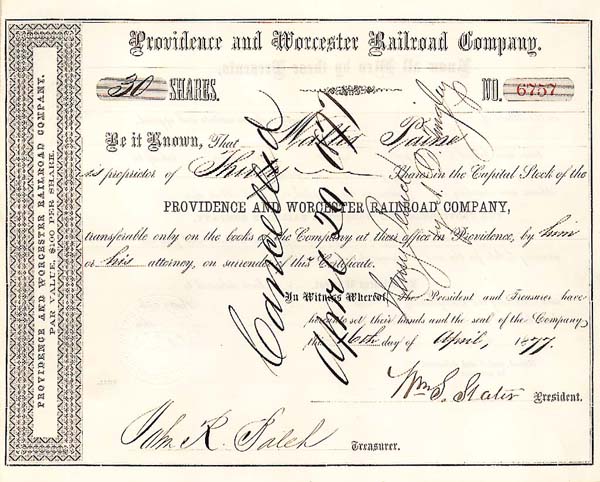 Providence and Worcester Railroad Company.
30 SHARES. NO. 6757
Be it Known, That Walter Paine
is proprietor of Thirty Shares in the Capital Stock of the
PROVIDENCE AND WORCESTER RAILROAD COMPANY,
transferable only on the books of the Company at their office in Providence, by him
or his attorney, on surrender of this Certificate.
In Witness Whereof, The President and Treasurer have
hereunto set their hands and the seal of the Company
the 16th day of April, 1877.
Wm S. Slater President.
John R. Balch Treasurer.
PROVIDENCE AND WORCESTER RAILROAD COMPANY.
PAR VALUE, $100 PER SHARE.
Cancelled
April 20, 1897